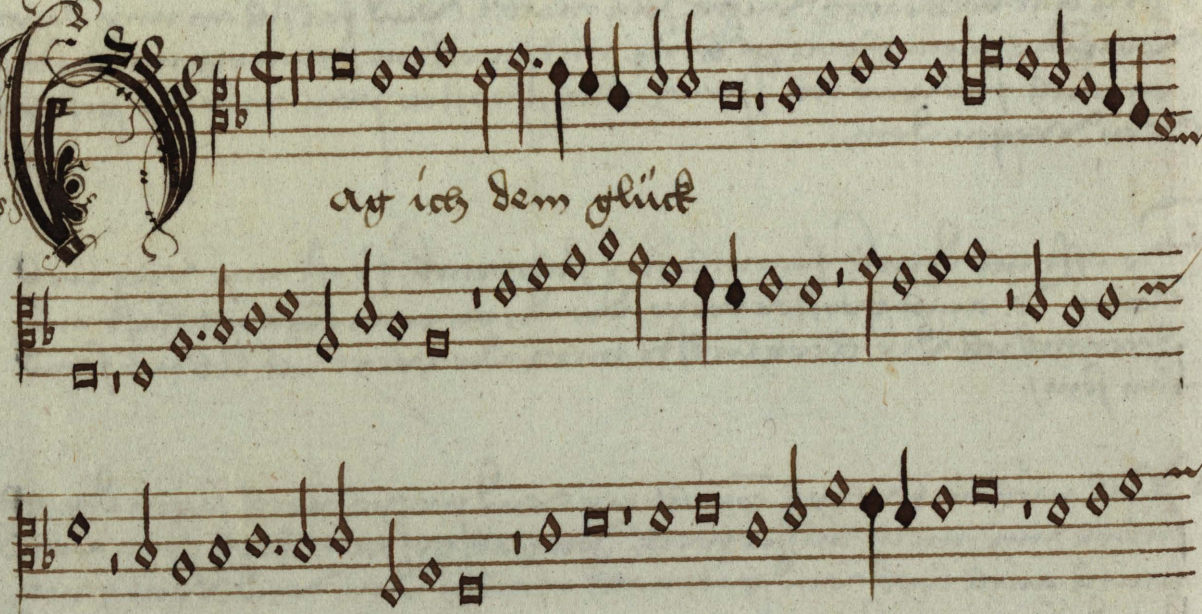 ag ich dem glück